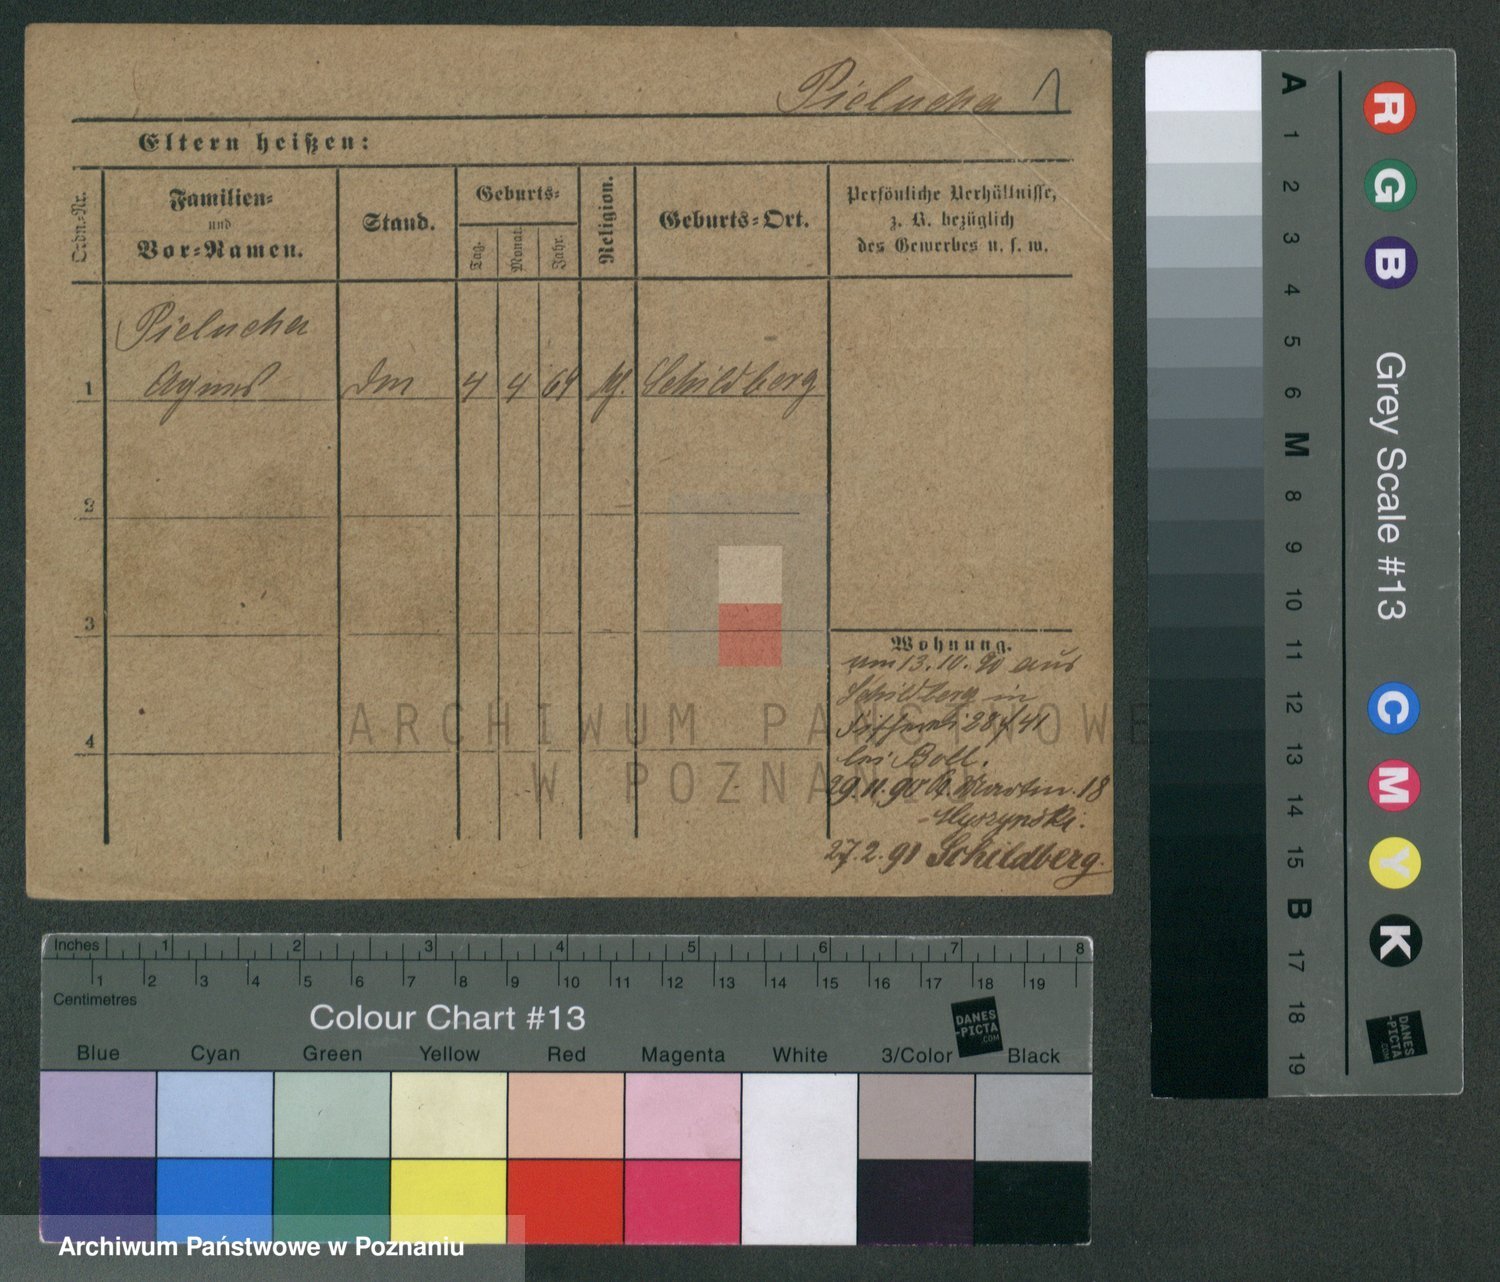 Pielucha
Eltern heißen:
Ordn.-Nr.
Familien-
und
Vor-Namen.
Stand.
Geburts-
Tag.
Monat.
Jahr.
Religion.
Geburts-Ort.
Persönliche Verhältnisse,
z. B. bezüglich
des Gewerbes u. s. w.
Pielucha
1 Agnes 4 4 64 Schildberg
2
3
4
Wohnung.
13.10.90 aus
Schildberg in
28/41
bei Boll.
29.11.90 St. Martin 18
27.2.91 Schildberg.
ARCHIWUM PAŃSTWOWE
W POZNANIU
Inches 1 2 3 4 5 6 7 8
1 2 3 4 5 6 7 8 9 10 11 12 13 14 15 16 17 18 19
Centimetres
Colour Chart #13
DANES
-PICTA
.COM
Blue Cyan Green Yellow Red Magenta White 3/Color Black
Archiwum Państwowe w Poznaniu
A 1 2 3 4 5 6 M 8 9 10 11 12 13 14 15 B 17 18 19
R G B
Grey Scale #13
C M Y K
DANES
-PICTA
.COM